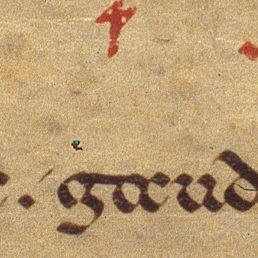 . gaud